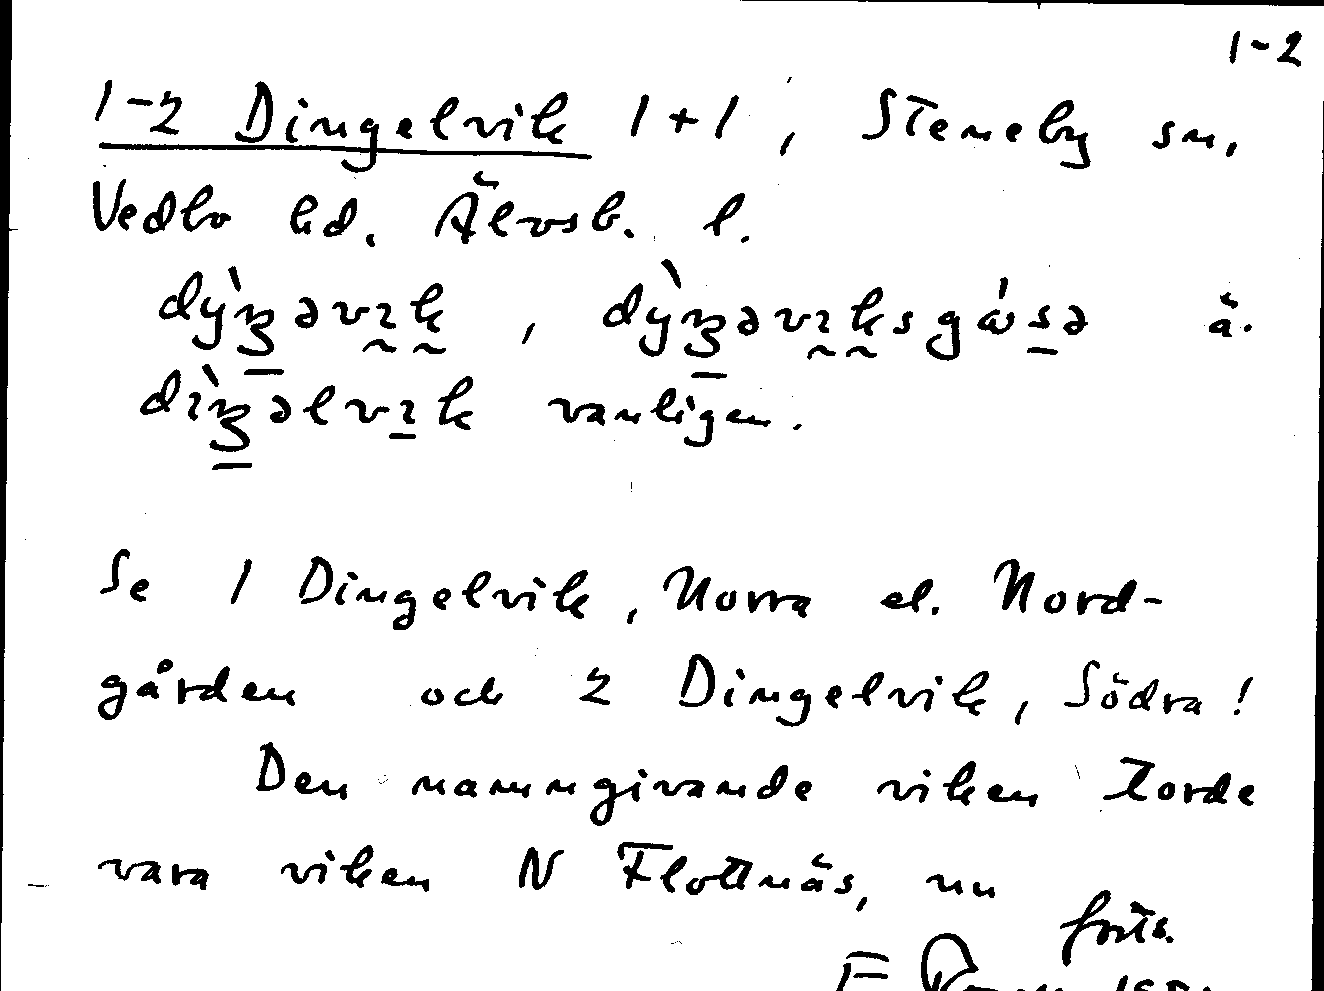 1-2
1-2 Dingelvik 1+1, Steneby sn,
Vedbo hd. Älvsb. l.
dỳŋəvɪk, dỳŋəvɪksgɷ́sə ä.
dɪ̀ŋəlvɪk vanligen.
Se 1 Dingelvik, Norra el. Nord-
gården och 2 Dingelvik, Södra!
Den namngivande viken torde
vara viken N Flottnäs, nu
forts.